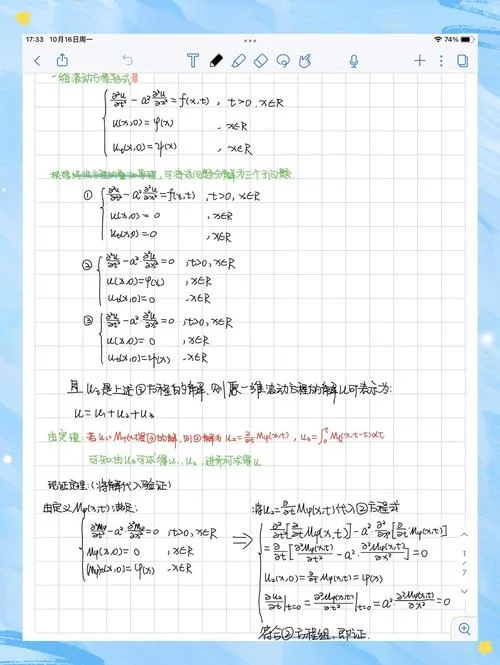 17:33 10月16日周一
74%
一维波动方程形式
∂²u/∂t² - a²∂²u/∂x² = f(x,t) , t>0, x∈R
u(x,0) = φ(x) , x∈R
uₜ(x,0) = ψ(x) , x∈R
可将该问题分解为三个子问题.
① ∂²u/∂t² - a²·∂²u/∂x² = f(x,t) , t>0, x∈R
u(x,0) = 0 , x∈R
uₜ(x,0) = 0 , x∈R
② ∂²u/∂t² - a²·∂²u/∂x² = 0 , t>0, x∈R
u(x,0) = φ(x) , x∈R
uₜ(x,0) = 0 , x∈R
③ ∂²u/∂t² - a²·∂²u/∂x² = 0 , t>0, x∈R
u(x,0) = 0 , x∈R
uₜ(x,0) = ψ(x) , x∈R
是上述 方程 的解, 则原一维波动方程的解u可表示为:
u = u₁ + u₂ + u₃
由定理: 若 是③的解, 则②解为 u₂ = ∂/∂t Mφ(x,t) ,
可知由u₃可求得u₁, u₂, 进而可求得u.
现证定理: (将解代入验证)
由定义Mφ(x,t)满足:
∂²Mφ/∂t² - a²·∂²Mφ/∂x² = 0 , t>0, x∈R
Mφ(x,0) = 0 , x∈R
(Mφ)ₜ(x,0) = φ(x) , x∈R
⇒
将u₂ = ∂/∂t Mφ(x,t) 代入②方程式
∂²/∂t²[∂/∂t Mφ(x,t)] - a²·∂²/∂x²[∂/∂t Mφ(x,t)]
= ∂/∂t[∂²Mφ(x,t)/∂t² - a²·∂²Mφ(x,t)/∂x²] = 0
u₂(x,0) = ∂/∂t Mφ(x,t) = φ(x)
∂u₂/∂t|t=0 = ∂²Mφ(x,t)/∂t²|t=0 = a²·∂²Mφ(x,t)/∂x² = 0
符合②方程组, 即证.
1
/
7